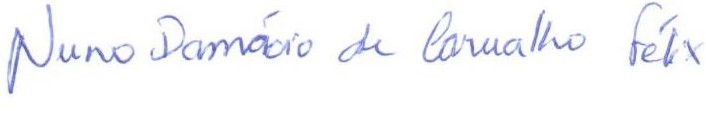 Nuno Damásio de Carvalho Félix